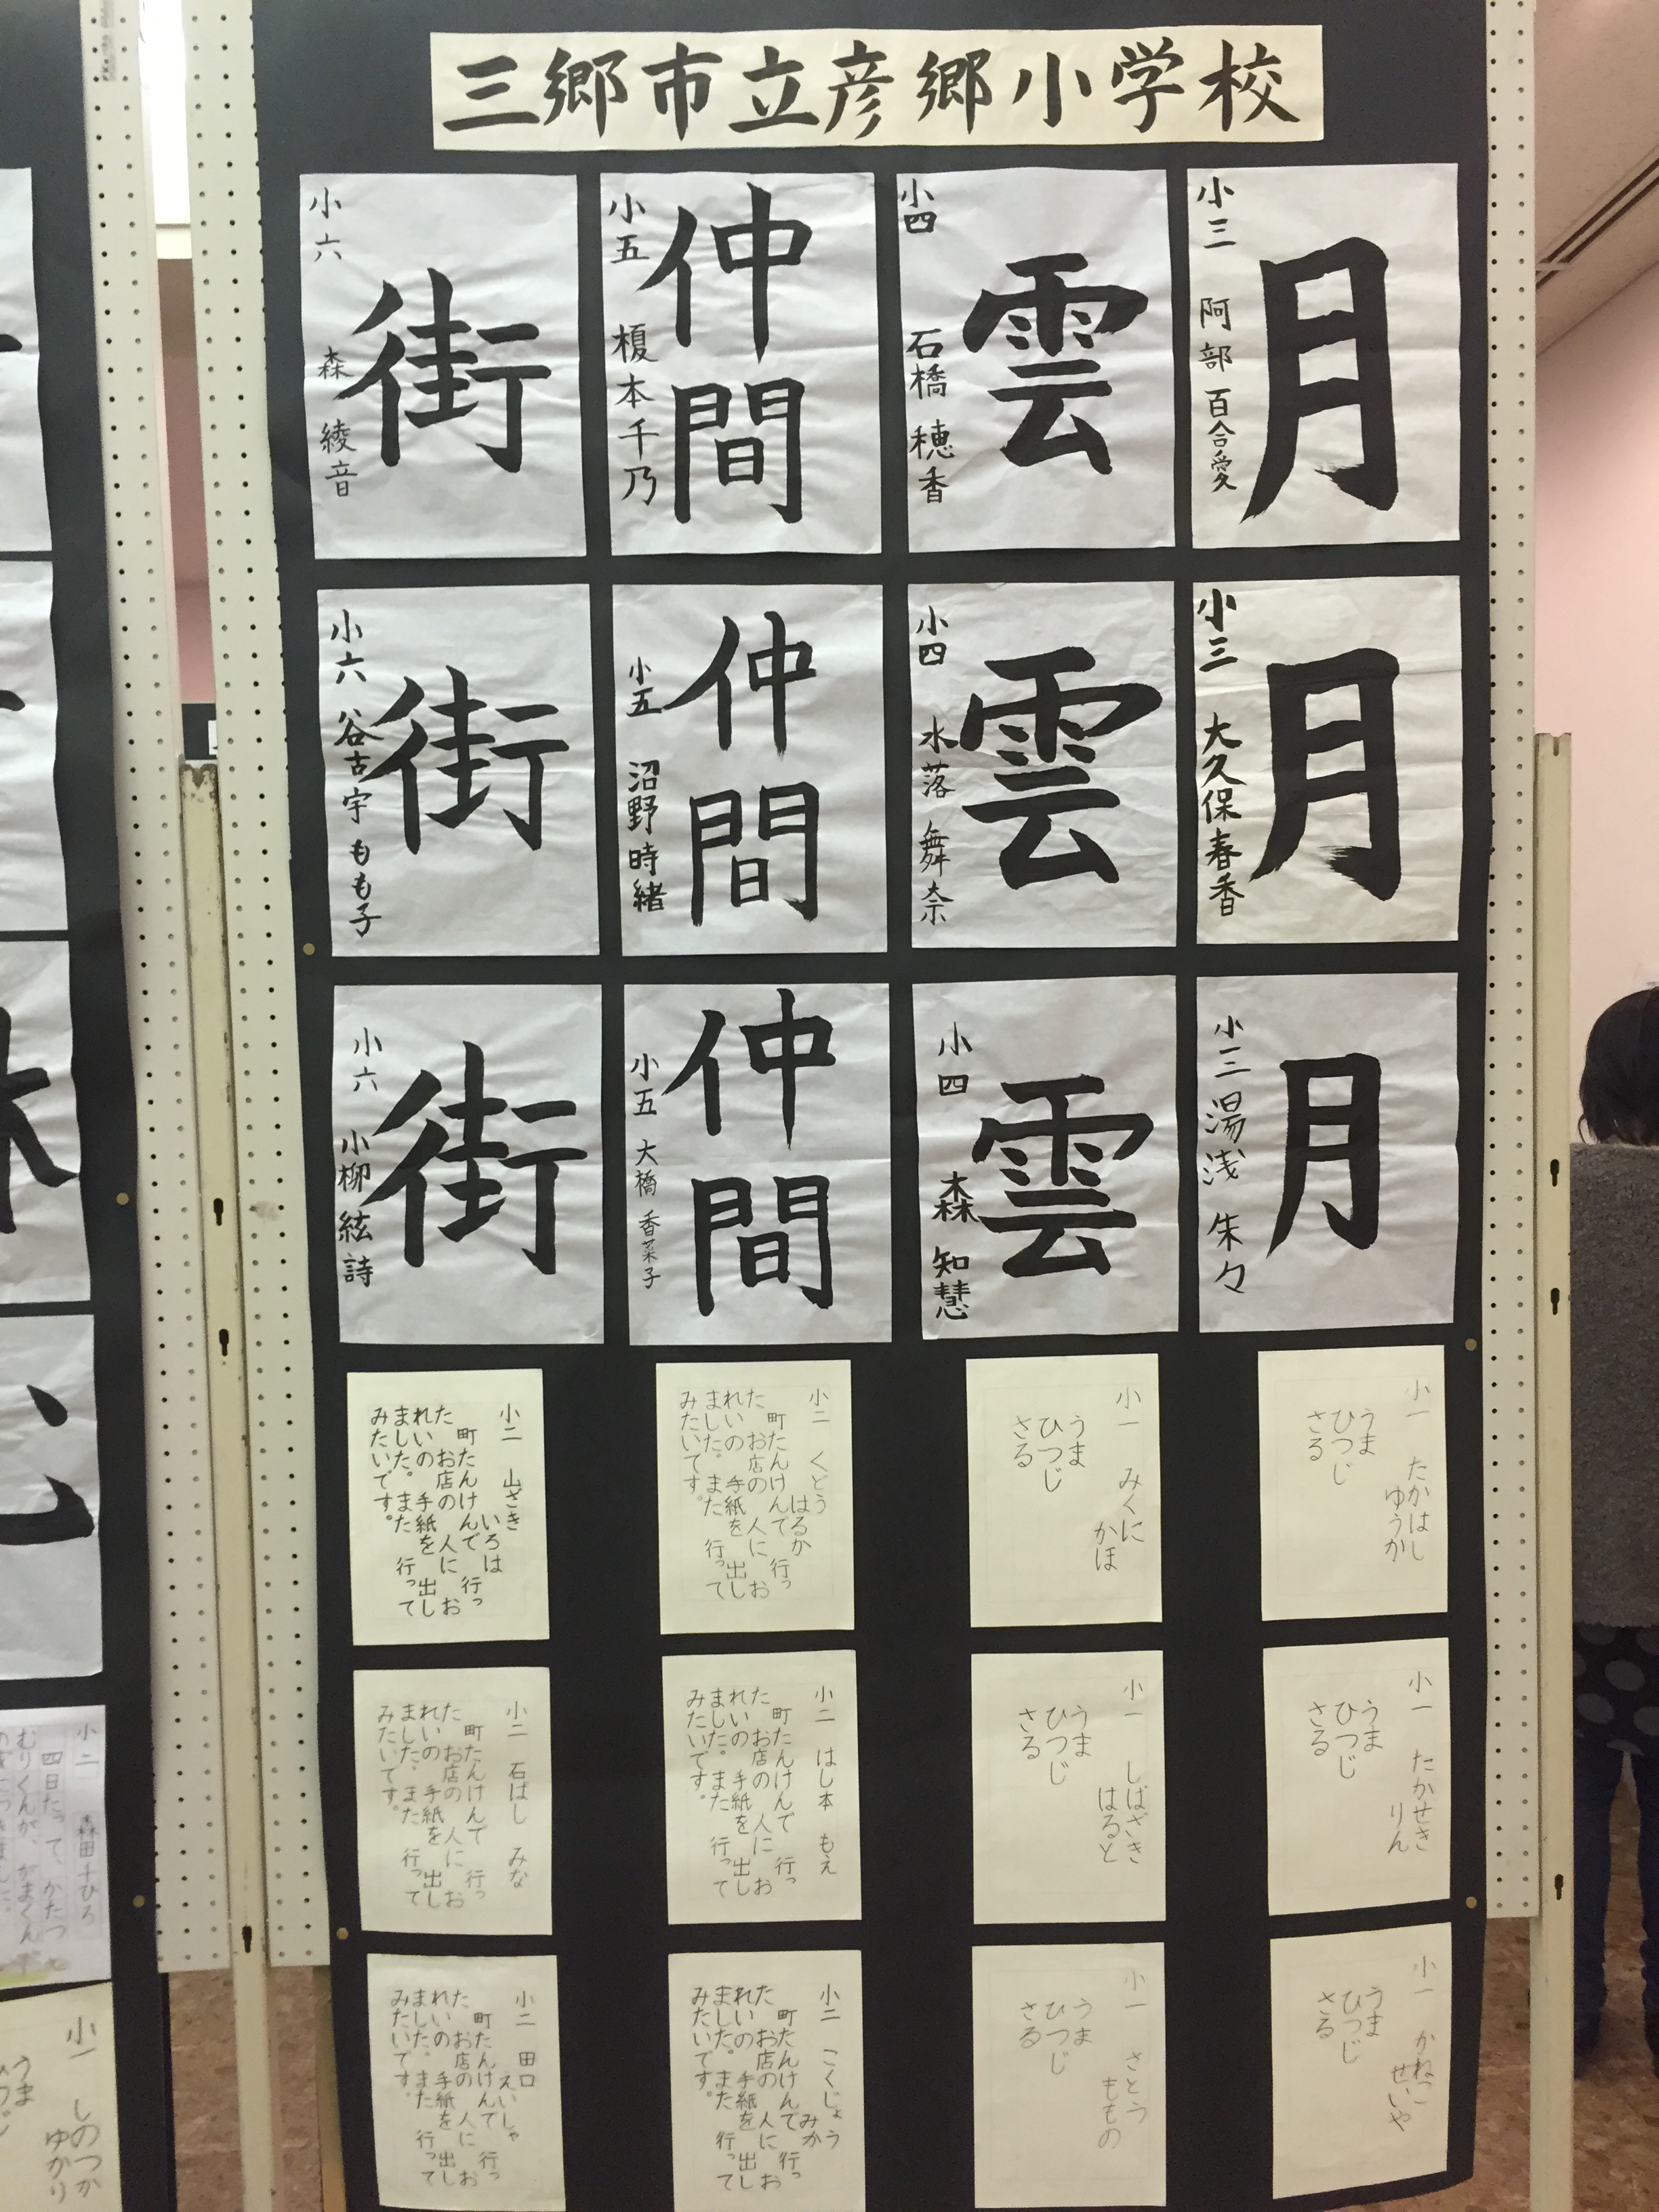 三郷市立彦郷小学校
月
小三 阿部 百合愛
雲
小四 石橋 穂香
仲間
小五 榎本千乃
街
小六 森 綾音
月
小三 大久保春香
雲
小四 水落 舞奈
仲間
小五 沼野時緒
街
小六 谷古宇 もも子
月
小三 湯浅 朱々
雲
小四 森 知慧
仲間
小五 大橋 香菜子
街
小六 小柳 絃詩
小一 たかはし
ゆうか
うま
ひつじ
さる
小一 みくに
かほ
うま
ひつじ
さる
小二 くどう
はるか
町たんけんで 行っ
た お店の 人に お
れいの 手紙を 出し
ました。また 行って
みたいです。
小二 山ざき
いろは
町たんけんで 行っ
た お店の 人に お
れいの 手紙を 出し
ました。また 行って
みたいです。
小一 たかせき
りん
うま
ひつじ
さる
小一 しばざき
はると
うま
ひつじ
さる
小二 はし本 もえ
町たんけんで 行っ
た お店の 人に お
れいの 手紙を 出し
ました。また 行って
みたいです。
小二 石ばし みな
町たんけんで 行っ
た お店の 人に お
れいの 手紙を 出し
ました。また 行って
みたいです。
小一 かねこ
せいや
うま
ひつじ
さる
小一 さとう
ももの
うま
ひつじ
さる
小二 こくじょう
みか
町たんけんで 行っ
た お店の 人に お
れいの 手紙を 出し
ました。また 行って
みたいです。
小二 田口
えいしゃ
町たんけんで 行っ
た お店の 人に お
れいの 手紙を 出し
ました。また 行って
みたいです。
小二 森田千ひろ
四日たって、かたつ
むりくんが、がまくん
小一 しのつか
ゆかり
うま